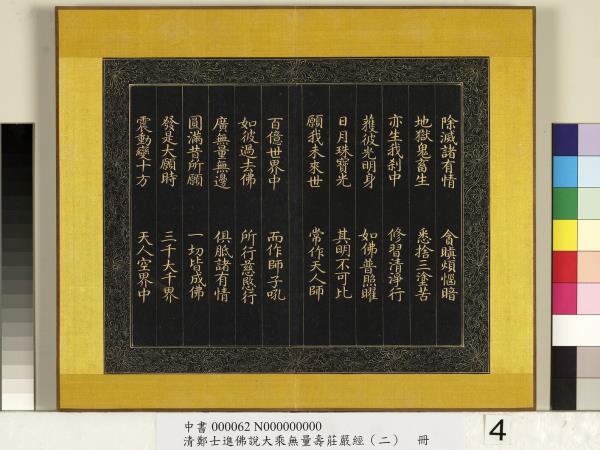 除滅諸有情　貪瞋煩惱暗
地獄鬼畜生　悉捨三塗苦
亦生我剎中　修習清淨行
獲彼光明身　如佛普照曜
日月珠寶光　其明不可比
願我未來世　常作天人師
百億世界中　而作師子吼
如彼過去佛　所行慈愍行
廣無量無邊　俱胝諸有情
圓滿昔所願　一切皆成佛
發是大願時　三千大千界
震動徧十方　天人空界中
中書 000062 N000000000
清鄭士進佛說大乘無量壽莊嚴經（二）　冊
4